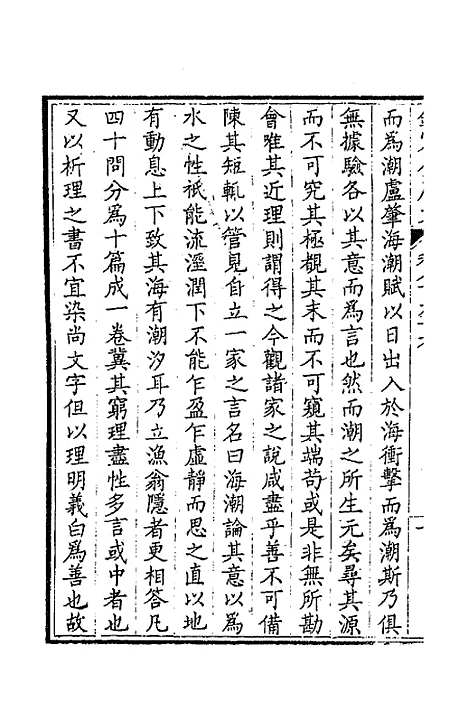 而爲潮盧肇海潮賦以日出入於海衝擊而爲潮斯乃俱
無據驗各以其意而爲言也然而潮之所生元矣尋其源
而不可究其極覩其末而不可窺其端苟或是非無所勘
會唯其近理則謂得之今觀諸家之說咸盡乎善不可備
陳其短輒以管見自立一家之言名曰海潮論其意以爲
水之性祇能流溼潤下不能乍盈乍虛靜而思之直以地
有動息上下致其海有潮汐耳乃立漁翁隱者更相答凡
四十問分爲十篇成一卷冀其窮理盡性多言或中者也
又以析理之書不宜染尚文字但以理明義白爲善也故